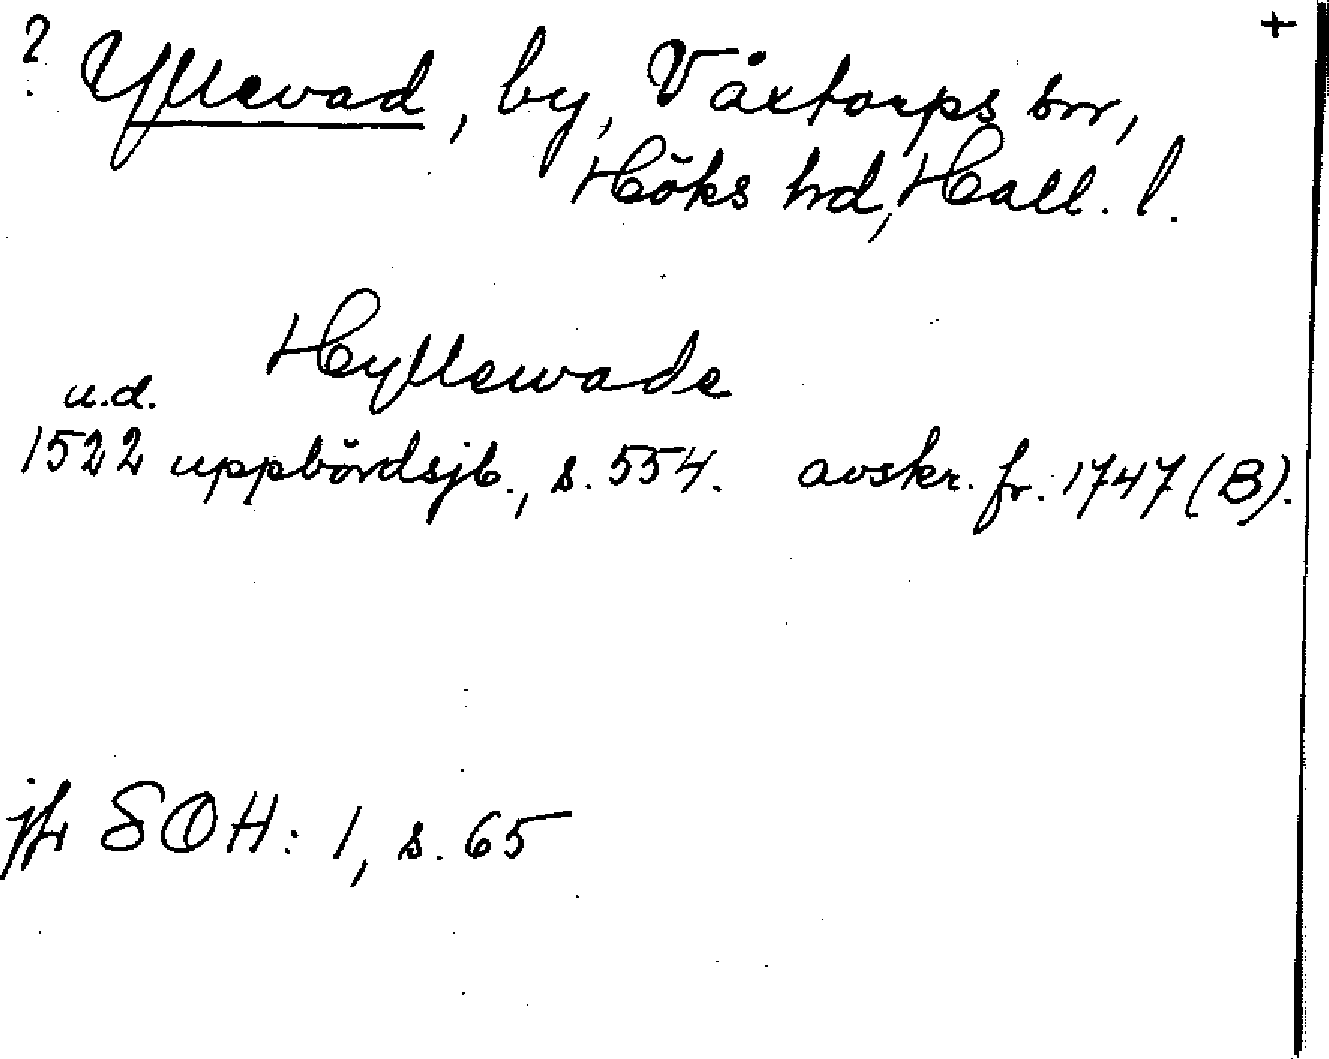 ? Yllevad, by, Våxtorps sn, +
Höks hd, Hall. l.
Hyllewade
u.d.
1522 uppbördsjb., s. 554. avskr. fr. 1747 (B).
jfr SOH: 1, s. 65